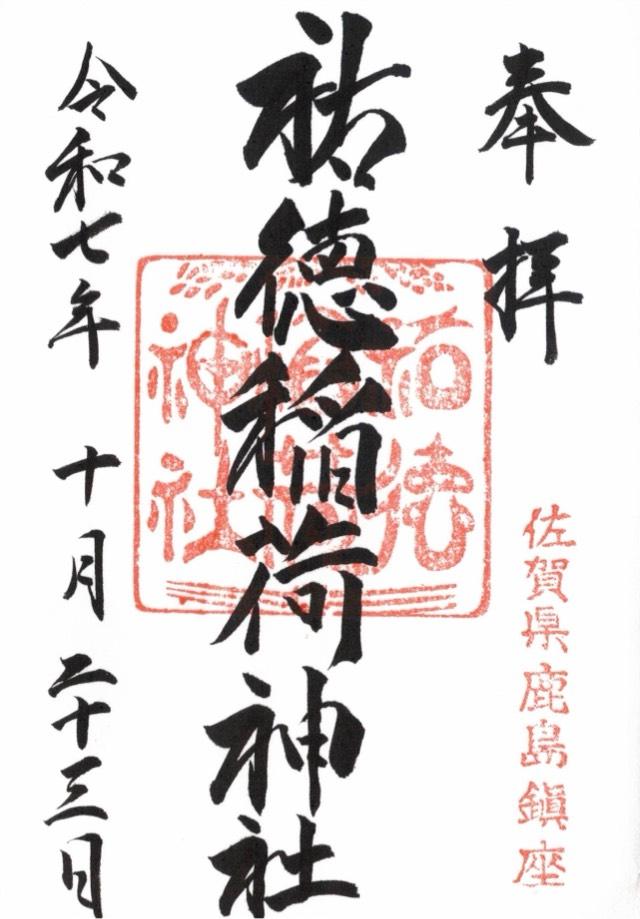 奉拝
佐賀県鹿島鎮座
祐徳稲荷神社
祐徳
稲荷
神社
令和七年 十月 二十三日